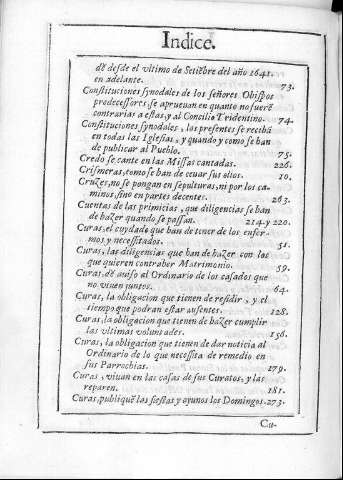 Indice.
dẽ desde el vltimo de Setiẽbre del año 1641.
en adelante. 73.
Constituciones synodales de los señores Obispos
predecessores, se aprueuan en quanto no fuerẽ
contrarias a estas, y al Concilio Tridentino. 74.
Constituciones synodales, los presentes se recibã
en todas las Iglesias, y quando y como se han
de publicar al Pueblo. 75.
Credo se cante en las Missas cantadas. 226.
Crismeras, como se han de ceuar sus olios. 10.
Cruzes, no se pongan en sepulturas, ni por los ca-
minos, sino en partes decentes. 263.
Cuentas de las primicias, que diligencias se han
de hazer quando se passan. 214. y 220.
Curas, el cuydado que han de tener de los enfer-
mos y necessitados. 51.
Curas, las diligencias que han de hazer con los
que quieren contraher Matrimonio. 59.
Curas, dẽ auiso al Ordinario de los casados que
no viuen juntos. 64.
Curas, la obligacion que tienen de residir, y el
tiempo que podran estar ausentes. 128.
Curas, la obligacion que tienen de hazer cumplir
las vltimas voluntades. 156.
Curas, la obligacion que tienen de dar noticia al
Ordinario de lo que necessita de remedio en
sus Parrochias. 179.
Curas, viuan en las casas de sus Curatos, y las
reparen. 181.
Curas, publiquẽ las fiestas y ayunos los Domingos. 273.
Cu-